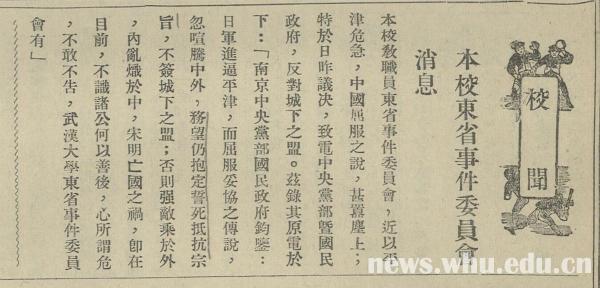 校聞
本校東省事件委員會
消息
本校敎職員東省事件委員會，近以平
津危急，中國屈服之說，甚囂塵上；
特於日昨議決，致電中央黨部曁國民
政府，反對城下之盟。茲錄其原電於
下：「南京中央黨部國民政府鈞鑒：
日軍進逼平津，而屈服妥協之傳說，
忽喧騰中外，務望仍抱定誓死抵抗宗
旨，不簽城下之盟；否則强敵乘於外
，內亂熾於中，宋明亡國之禍，卽在
目前，不識諸公何以善後，心所謂危
，不敢不告，武漢大學東省事件委員
會有」
news.whu.edu.cn